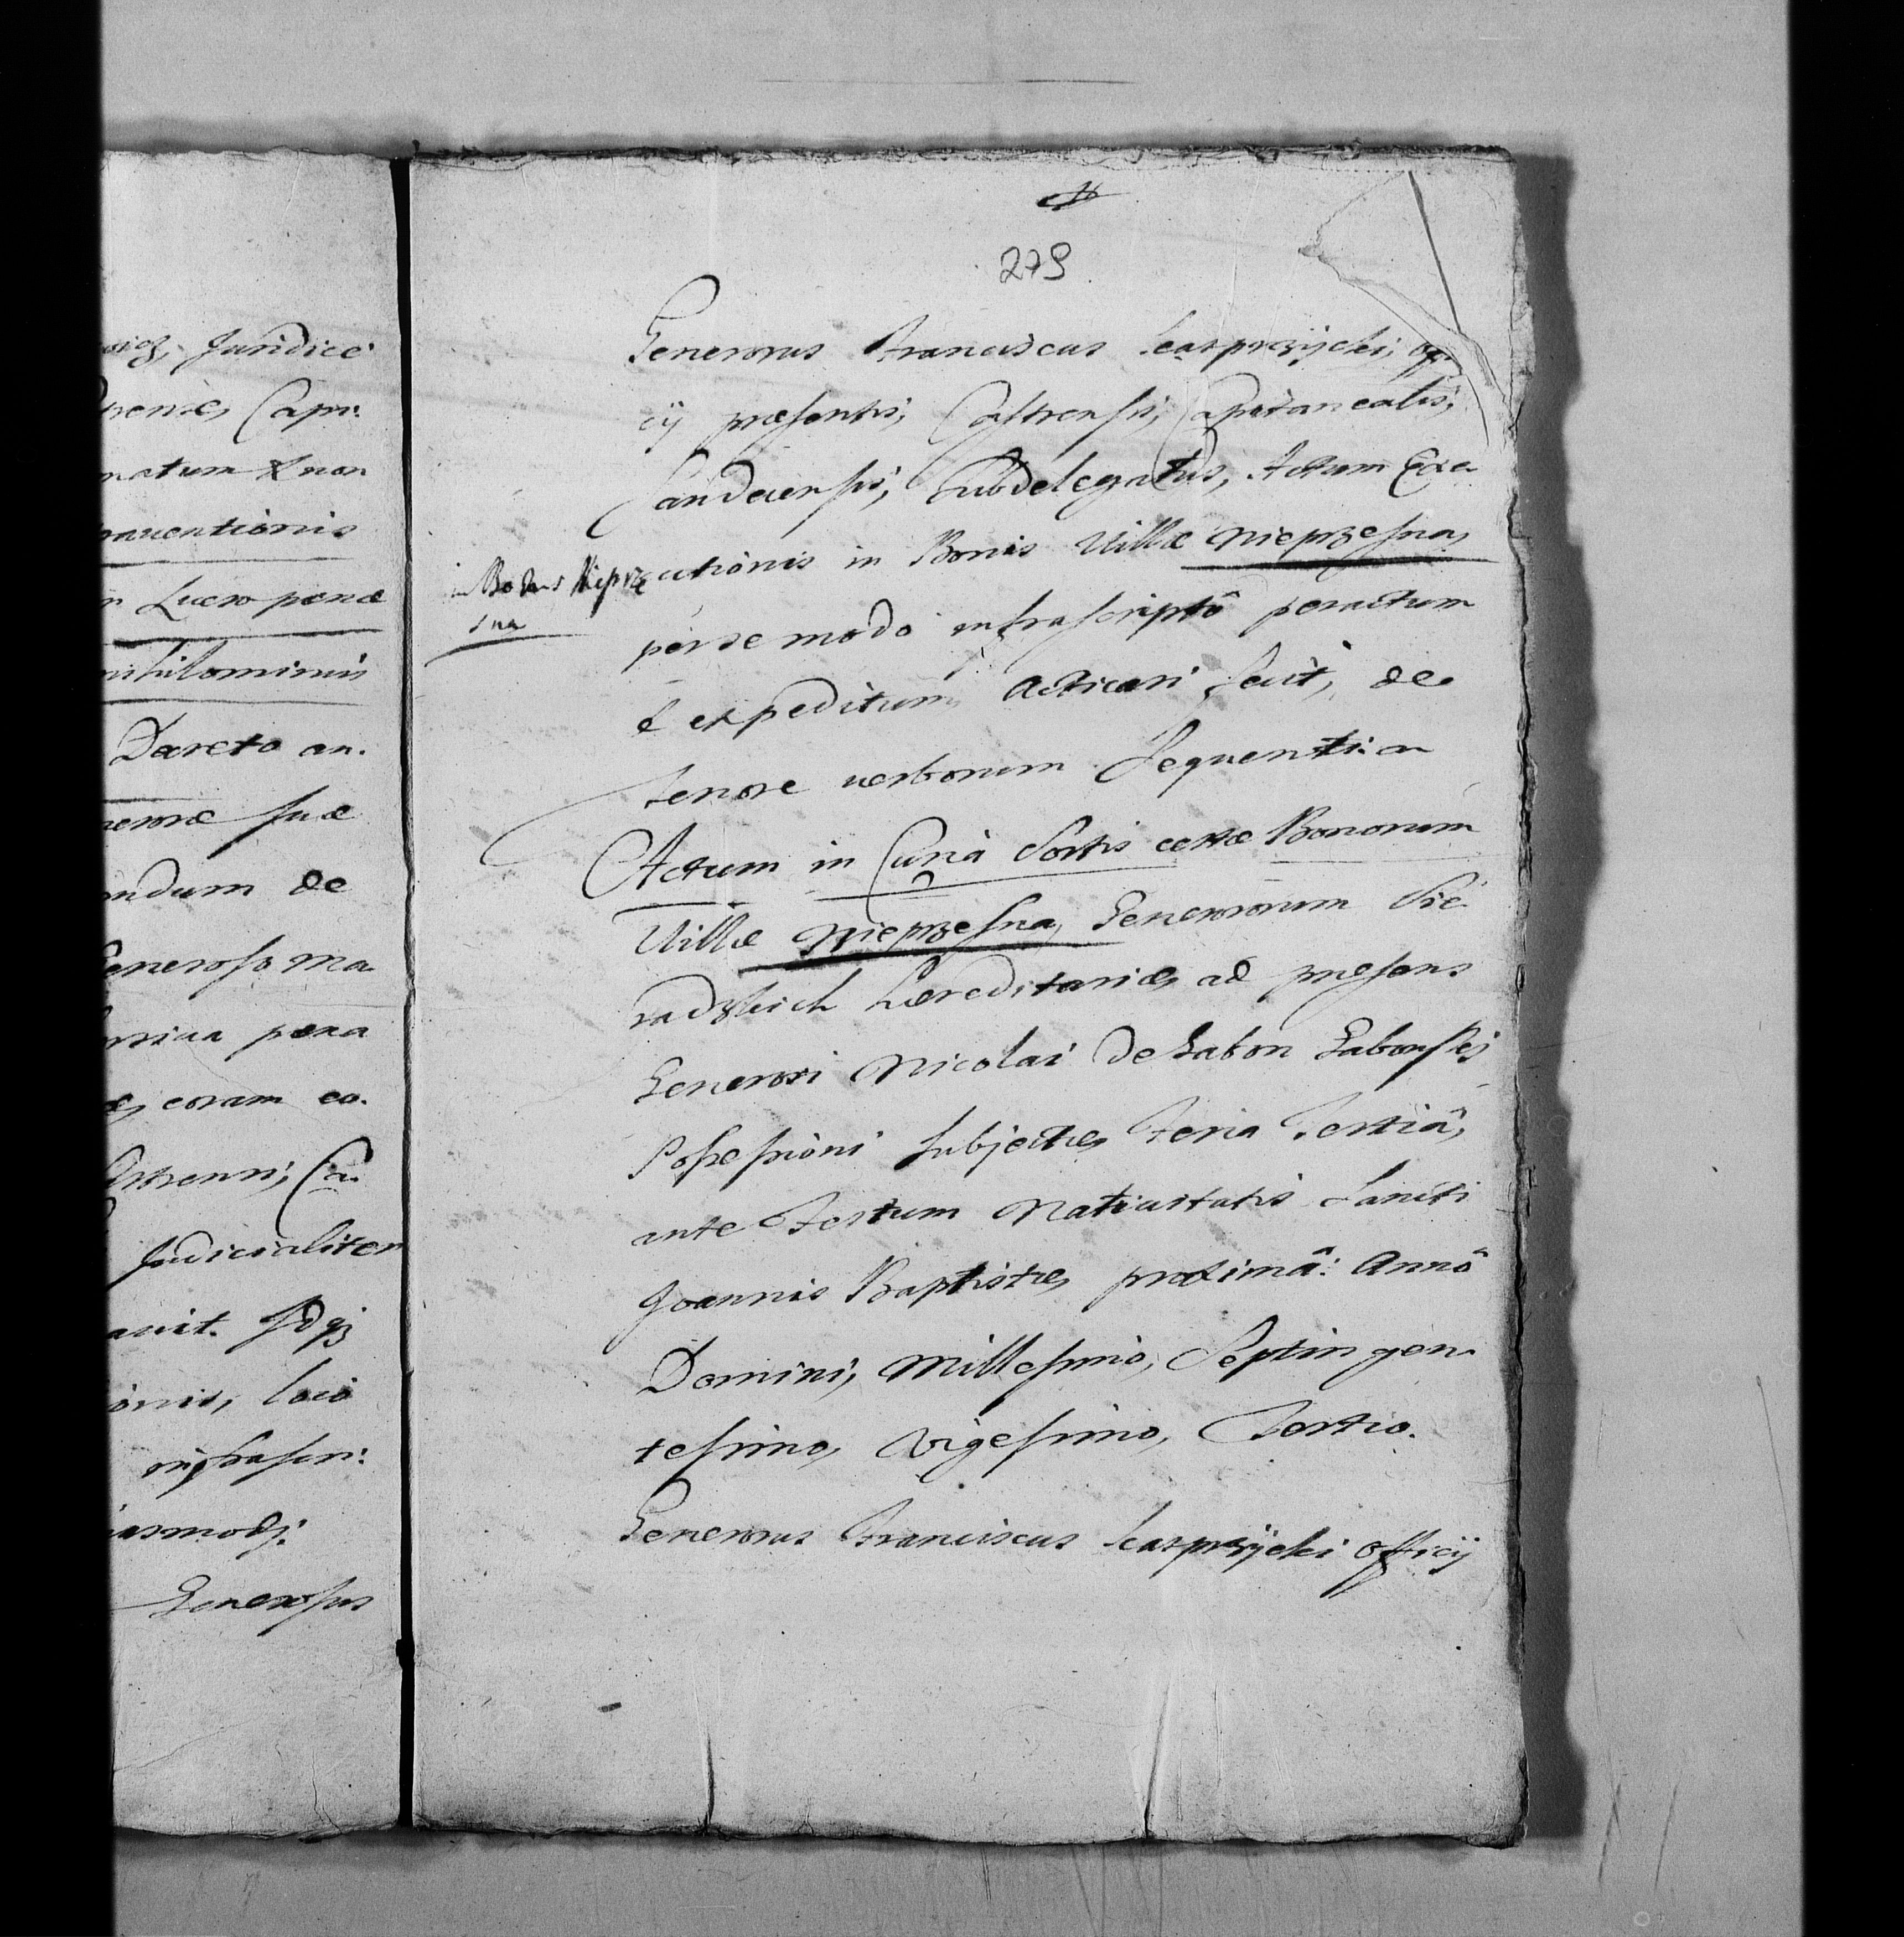 oicz, Juridice
trense, Capi:
natum & non
trauentionis
n Lucro pœnæ
nihilominus
Decreto an.
nerosæ suæ
andum de
Generoso Ma
pœna
coram eo.
astrensi, Ca.
Judicialiter
auit. Idqz
ionis, loco
infrascri:
iusmodj.
Generosus
279
Generosus Franciscus Kasprzÿcki, offi
cij præsentis, Castrensis, Capitanealis,
Sandecensis, Subdelegatus, Actum Exe
cutionis in Bonis Villæ Nieprzesna,
in Bonis Nieprze
sna
per se modo infrascriptô peractum
& expeditum, Acticari fecit, de
tenore verborum Sequenti.
Actum in Curiâ Sortis certæ Bonorum
Villæ Nieprzesna, Generosorum Sie
radzkich hæreditariæ, ad præsens
Generosi Nicolai de Łaboń Łabonskj
Possessioni Subjectæ, Feria Tertiâ,
ante Festum Natiuitatis Sancti
Joannis Baptistæ, proximâ: Annô
Domini, Millesimo, Septingen.
tesimo, Vigesimo, Tertio.
Generosus Franciscus Kasprzÿcki Officij